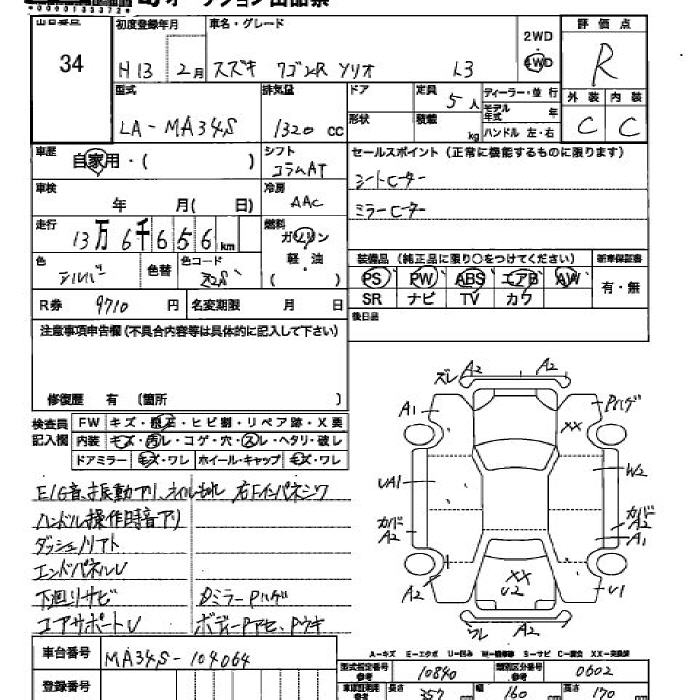 000010135372
オークション出品票
出品番号
34
初度登録年月
H13 2月
車名・グレード
スズキ ワゴンR ソリオ 1.3
2WD
4WD
評価点
R
外装 内装
C C
型式
LA-MA34S
排気量
1320 cc
ドア
形状
定員 5人
積載 kg
ディーラー・並行
モデル年式 年
ハンドル 左・右
車歴
自家用・( )
シフト
コラムAT
セールスポイント(正常に機能するものに限ります)
シートヒーター
ミラーヒーター
車検
年 月( 日)
冷房
AAC
走行
13万6千656km
燃料
ガソリン
軽・油
( )
色
シルバー
色替
色コード
Z2S
装備品(純正品に限り○をつけてください)
PS PW ABS エアB AW
SR ナビ TV カワ
新車保証書
有・無
R券 9710 円
名変期限 月 日
後日品
注意事項申告欄(不具合内容等は具体的に記入して下さい)
修復歴 有 〔箇所 〕
検査員記入欄
FW キズ・補正・ヒビ割・リペア跡・X要
内装 キズ・汚レ・コゲ・穴・スレ・ヘタリ・破レ
ドアミラー キズ・ワレ ホイール・キャップ キズ・ワレ
E/G音、振動アリ、オイルもれ 右Fインパネシワ
ハンドル操作時音アリ
ダッシュノリアト
エンドパネルU
下廻りサビ
ミラーPハゲ
コアサポートU ボディーPアセ、Pウキ
ズレ A2 A2
A1 Pハゲ
XX
UA1 W2
カバド A2
カバド A2
A1
A2 U1
XX
U2
ワレ A2
A-キズ E-エクボ U-凹み W-補修跡 S-サビ C-腐食 XX-交換済
車台番号
MA34S-104064
型式指定番号 参考 10840
類別区分番号 参考 0602
登録番号
車検証記載 参考
長さ 357 cm 幅 160 cm 高さ 170 cm